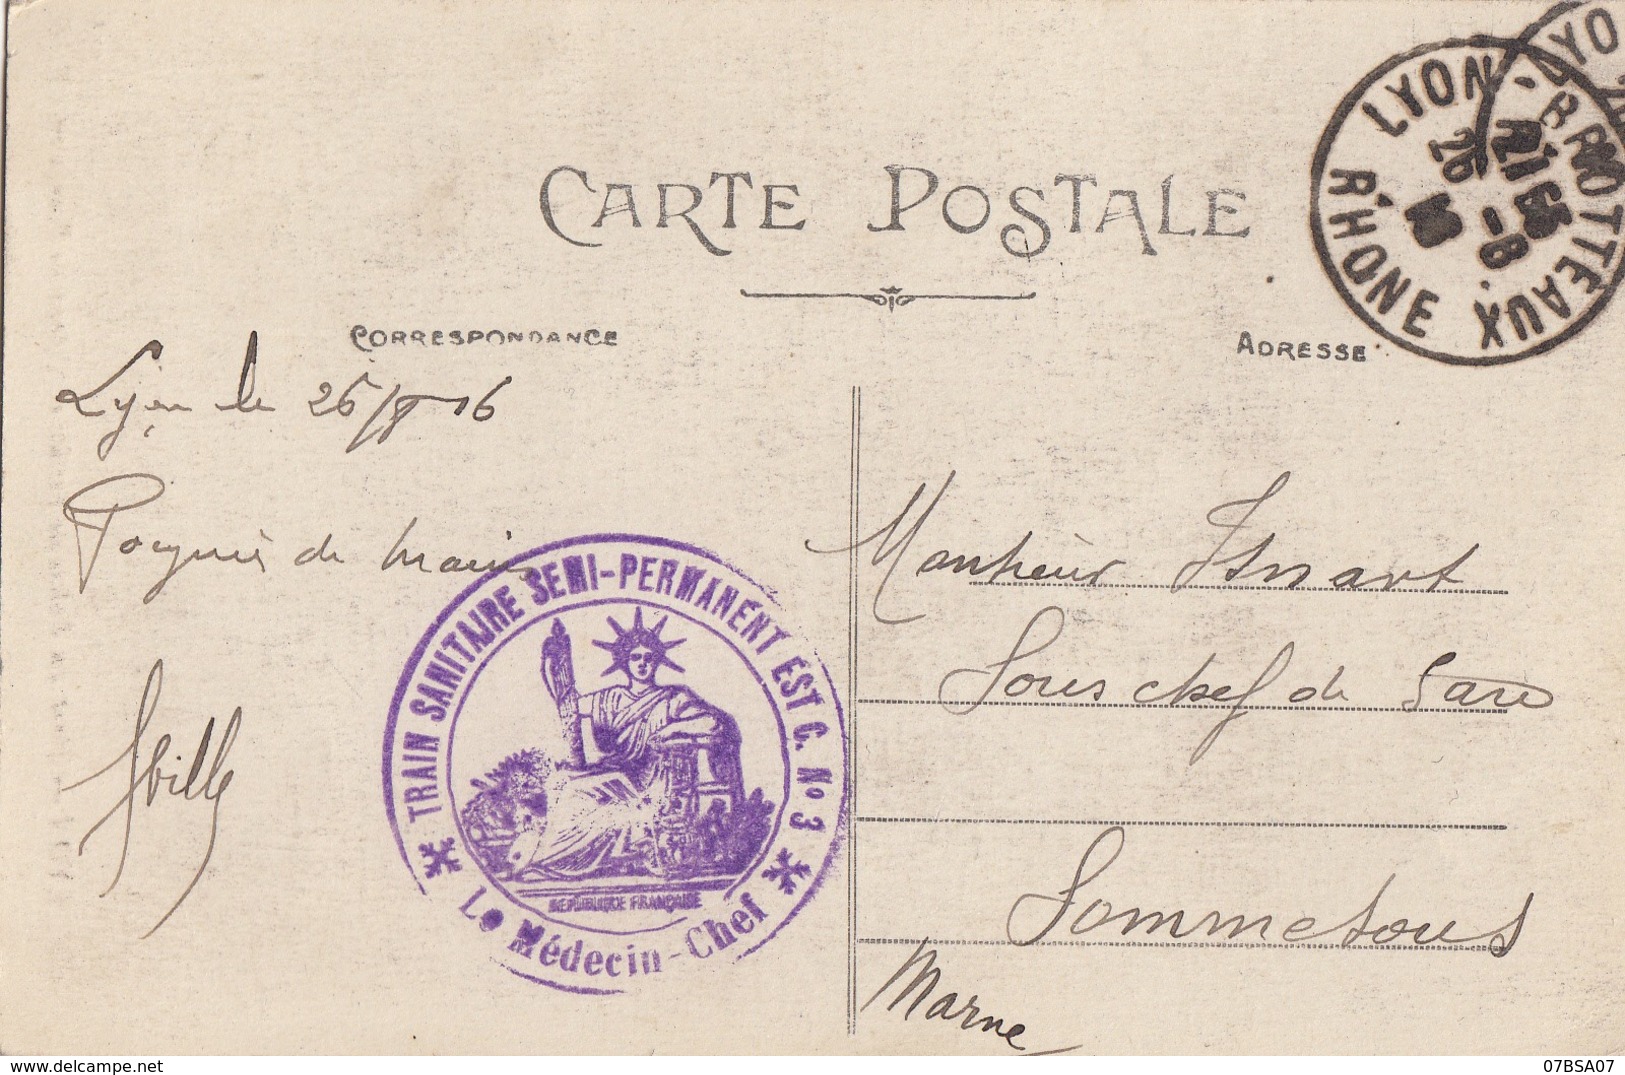 CARTE POSTALE
CORRESPONDANCE
ADRESSE
LYON - BROTTEAUX
RHONE
26 - 8
16
LYO
Lyon le 26/8 16
Poignée de main
TRAIN SANITAIRE SEMI-PERMANENT EST C. No 3
REPUBLIQUE FRANÇAISE
Le Médecin-Chef
Monsieur Isnart
Sous chef de Gare
Sommesous
Marne
07BSA07